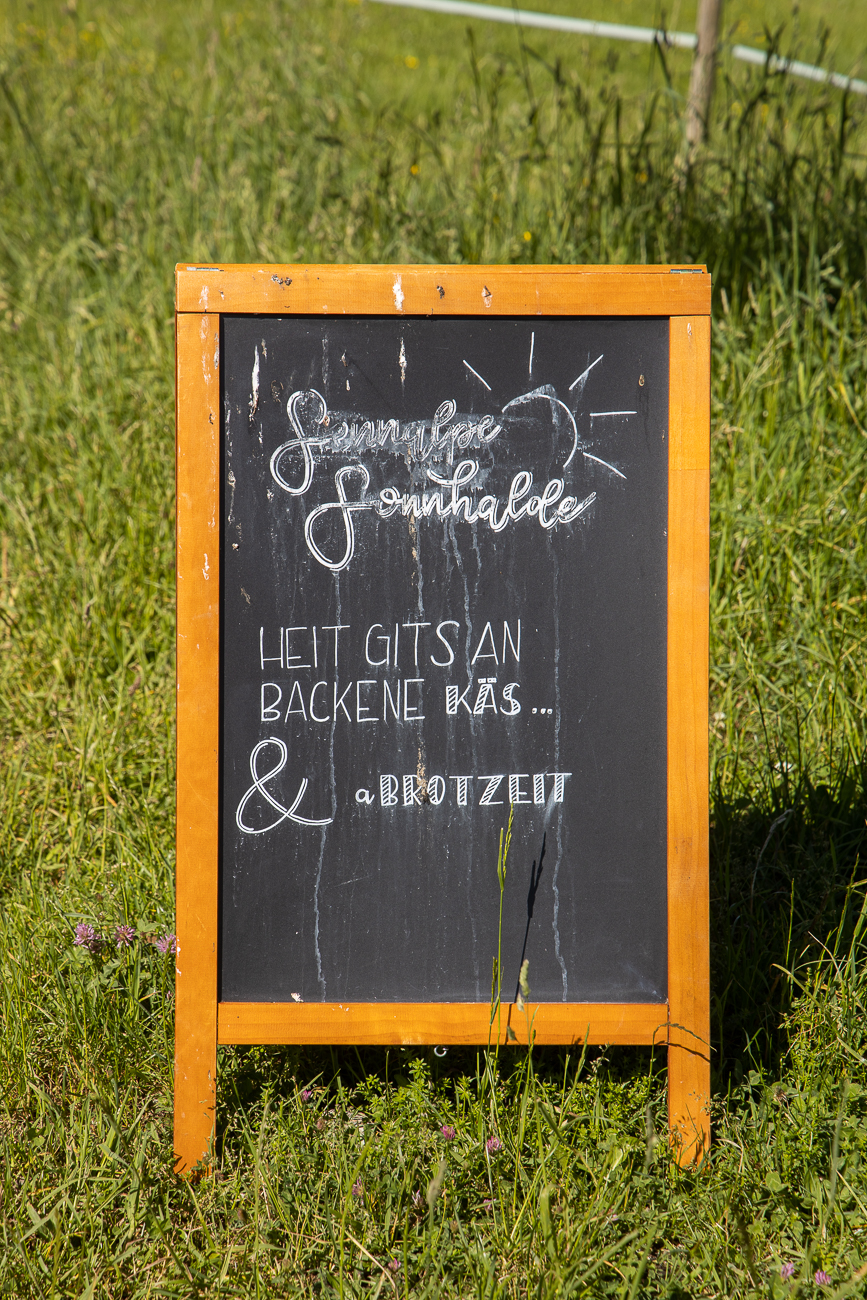 Sennalpe
Sonnhalde
HEIT GITS AN
BACKENE KÄS ...
& a BROTZEIT